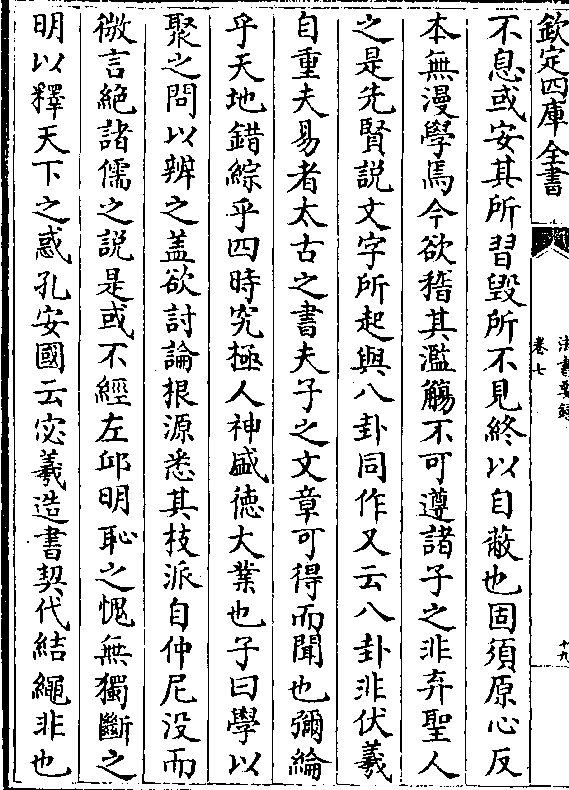 欽定四庫全書
法書要錄
卷七
十九
不息或安其所習毀所不見終以自蔽也固須原心反
本無漫學焉今欲稽其濫觴不可遵諸子之非弃聖人
之是先賢説文字所起與八卦同作又云八卦非伏羲
自重夫易者太古之書夫子之文章可得而聞也彌綸
乎天地錯綜乎四時究極人神盛徳大業也子曰學以
聚之問以辨之盖欲討論根源悉其枝派自仲尼没而
微言絶諸儒之説是或不經左邱明恥之愧無獨斷之
明以釋天下之惑孔安國云宓羲造書契代結繩非也